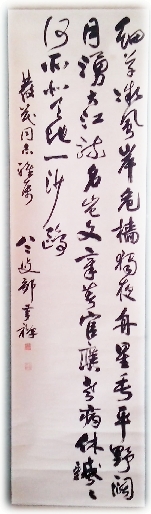 細草微風岸危檣獨夜舟星垂平野闊
月湧大江流名豈文章著官應老病休飄々
何所似天地一沙鷗
茂同志雅屬